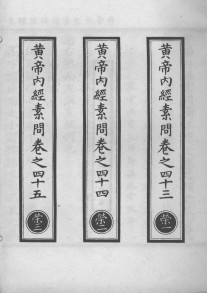 黃帝內經素問卷之四十三
榮一
黃帝內經素問卷之四十四
榮二
黃帝內經素問卷之四十五
榮三